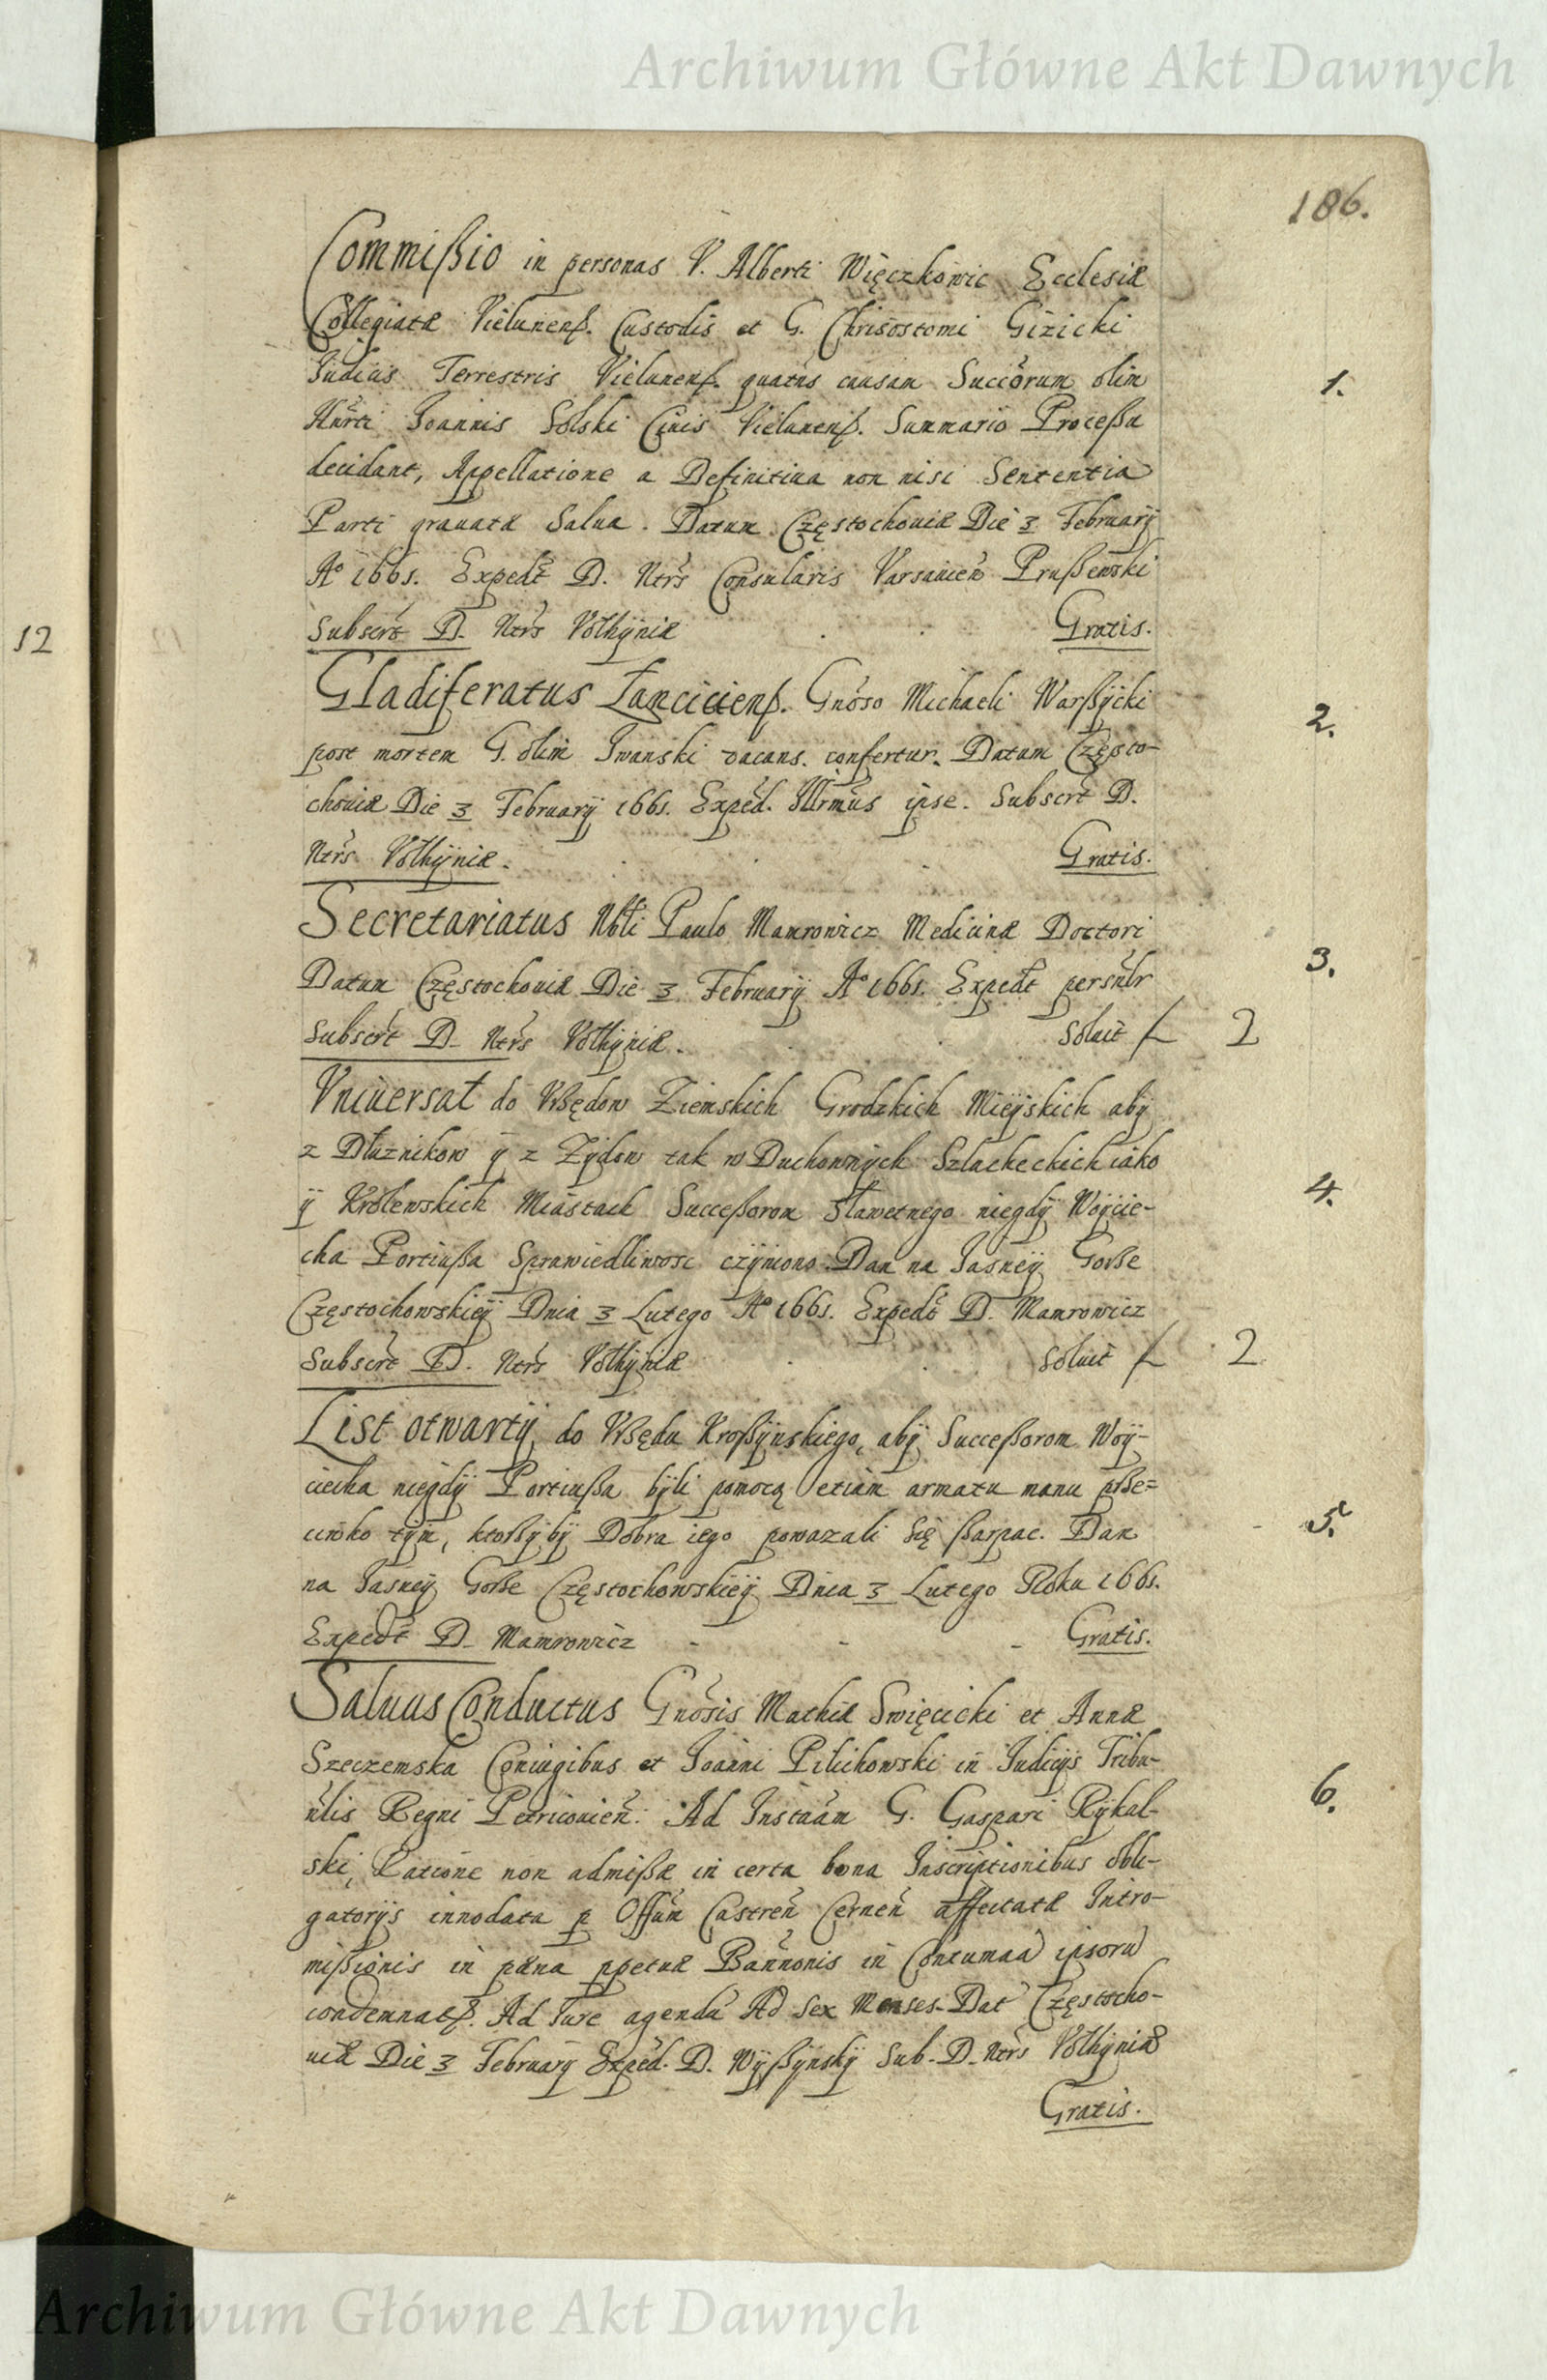 Archiwum Główne Akt Dawnych
186.
Commißio in personas V. Alberti Więczkowic Ecclesiæ
Collegiatæ Vielunenß. Custodis et G. Chrisostomi Gizicki
Judicis Terrestris Vielunenß. quatns causam Succorum olim
Hnrti Joannis Solski Civis Vielunenß. Summario Proceßu
decidant, Appellatione a Definitiua non nisi Sententia
Parti grauatæ Salua. Datum Częstochouiæ Die 3 Februarÿ
1.
Aº 1661. Expedt D. Ntrs Consularis Varsauien Prußewski
Subscrt D. Ntrs Volhÿniæ Gratis.
12
Gladiferatus Lanciciienß. Gnoso Michaeli Warßÿcki
post mortem G. olim Iwanski vacans. confertur. Datum Często-
2.
chouiæ Die 3 Februarÿ 1661. Exped. Illrmus ipse. Subscrt D.
Ntrs Volhÿniæ. Gratis.
Secretariatus Nbli Paulo Mamrowicz Medicinæ Doctori
Datum Częstochouiæ Die 3 Februarÿ Aº 1661. Expedt persnlr
3.
Subscrt D. Ntrs Volhÿniæ. Soluit f. 2
Vniuersał do Vrßędow Ziemskich Grodzkich Mieÿskich abÿ
z Dłuznikow ÿ z Zÿdow tak w Duchownÿch Szlacheckich iako
ÿ Krolewskich Miastach Succeßorom Sławetnego niegdÿ Woÿcie-
4.
cha Portiußa Sprawiedliwosc czÿniono. Dan na Jasneÿ Gorße
Częstochowskieÿ Dnia 3 Lutego Aº 1661. Expedt D. Mamrowicz
Subscrt D. Ntrs Volhÿniæ Soluit f. 2
List otwartÿ do Vrßędu Kroßÿnskiego, abÿ Succeßorom Woÿ-
ciecha niegdÿ Portiußa bÿli pomocą etiam armatu manu prße=
ciwko tÿm, ktorßÿbÿ Dobra iego powazali się ßarpac. Dan
5.
na Jasneÿ Gorße Częstochowskieÿ Dnia 3 Lutego Roku 1661.
Expedt D. Mamrowicz Gratis.
Saluus Conductus Gnosis Mathiæ Swięcicki et Annæ
Szeczemska Coniugibus et Joanni Pilichowski in Judicÿs Tribu-
nlis Regni Petricouien: Ad Instaam G. Gaspari Rÿkal-
6.
ski, Ratione non admißæ in certa bona Inscriptionibus obli-
gatorÿs innodata p Offum Castren Cernen affectatæ Intro-
mißionis in pæna ppetuæ Bannonis in Contumaa ipsoru
condemnatß. Ad Jure agendu Ad Sex Menses. Dat Częstocho-
uiæ Die 3 Februarÿ Exped. D. Wÿßÿnskÿ Sub. D. Ntrs Volhÿniæ
Gratis.
Archiwum Główne Akt Dawnych